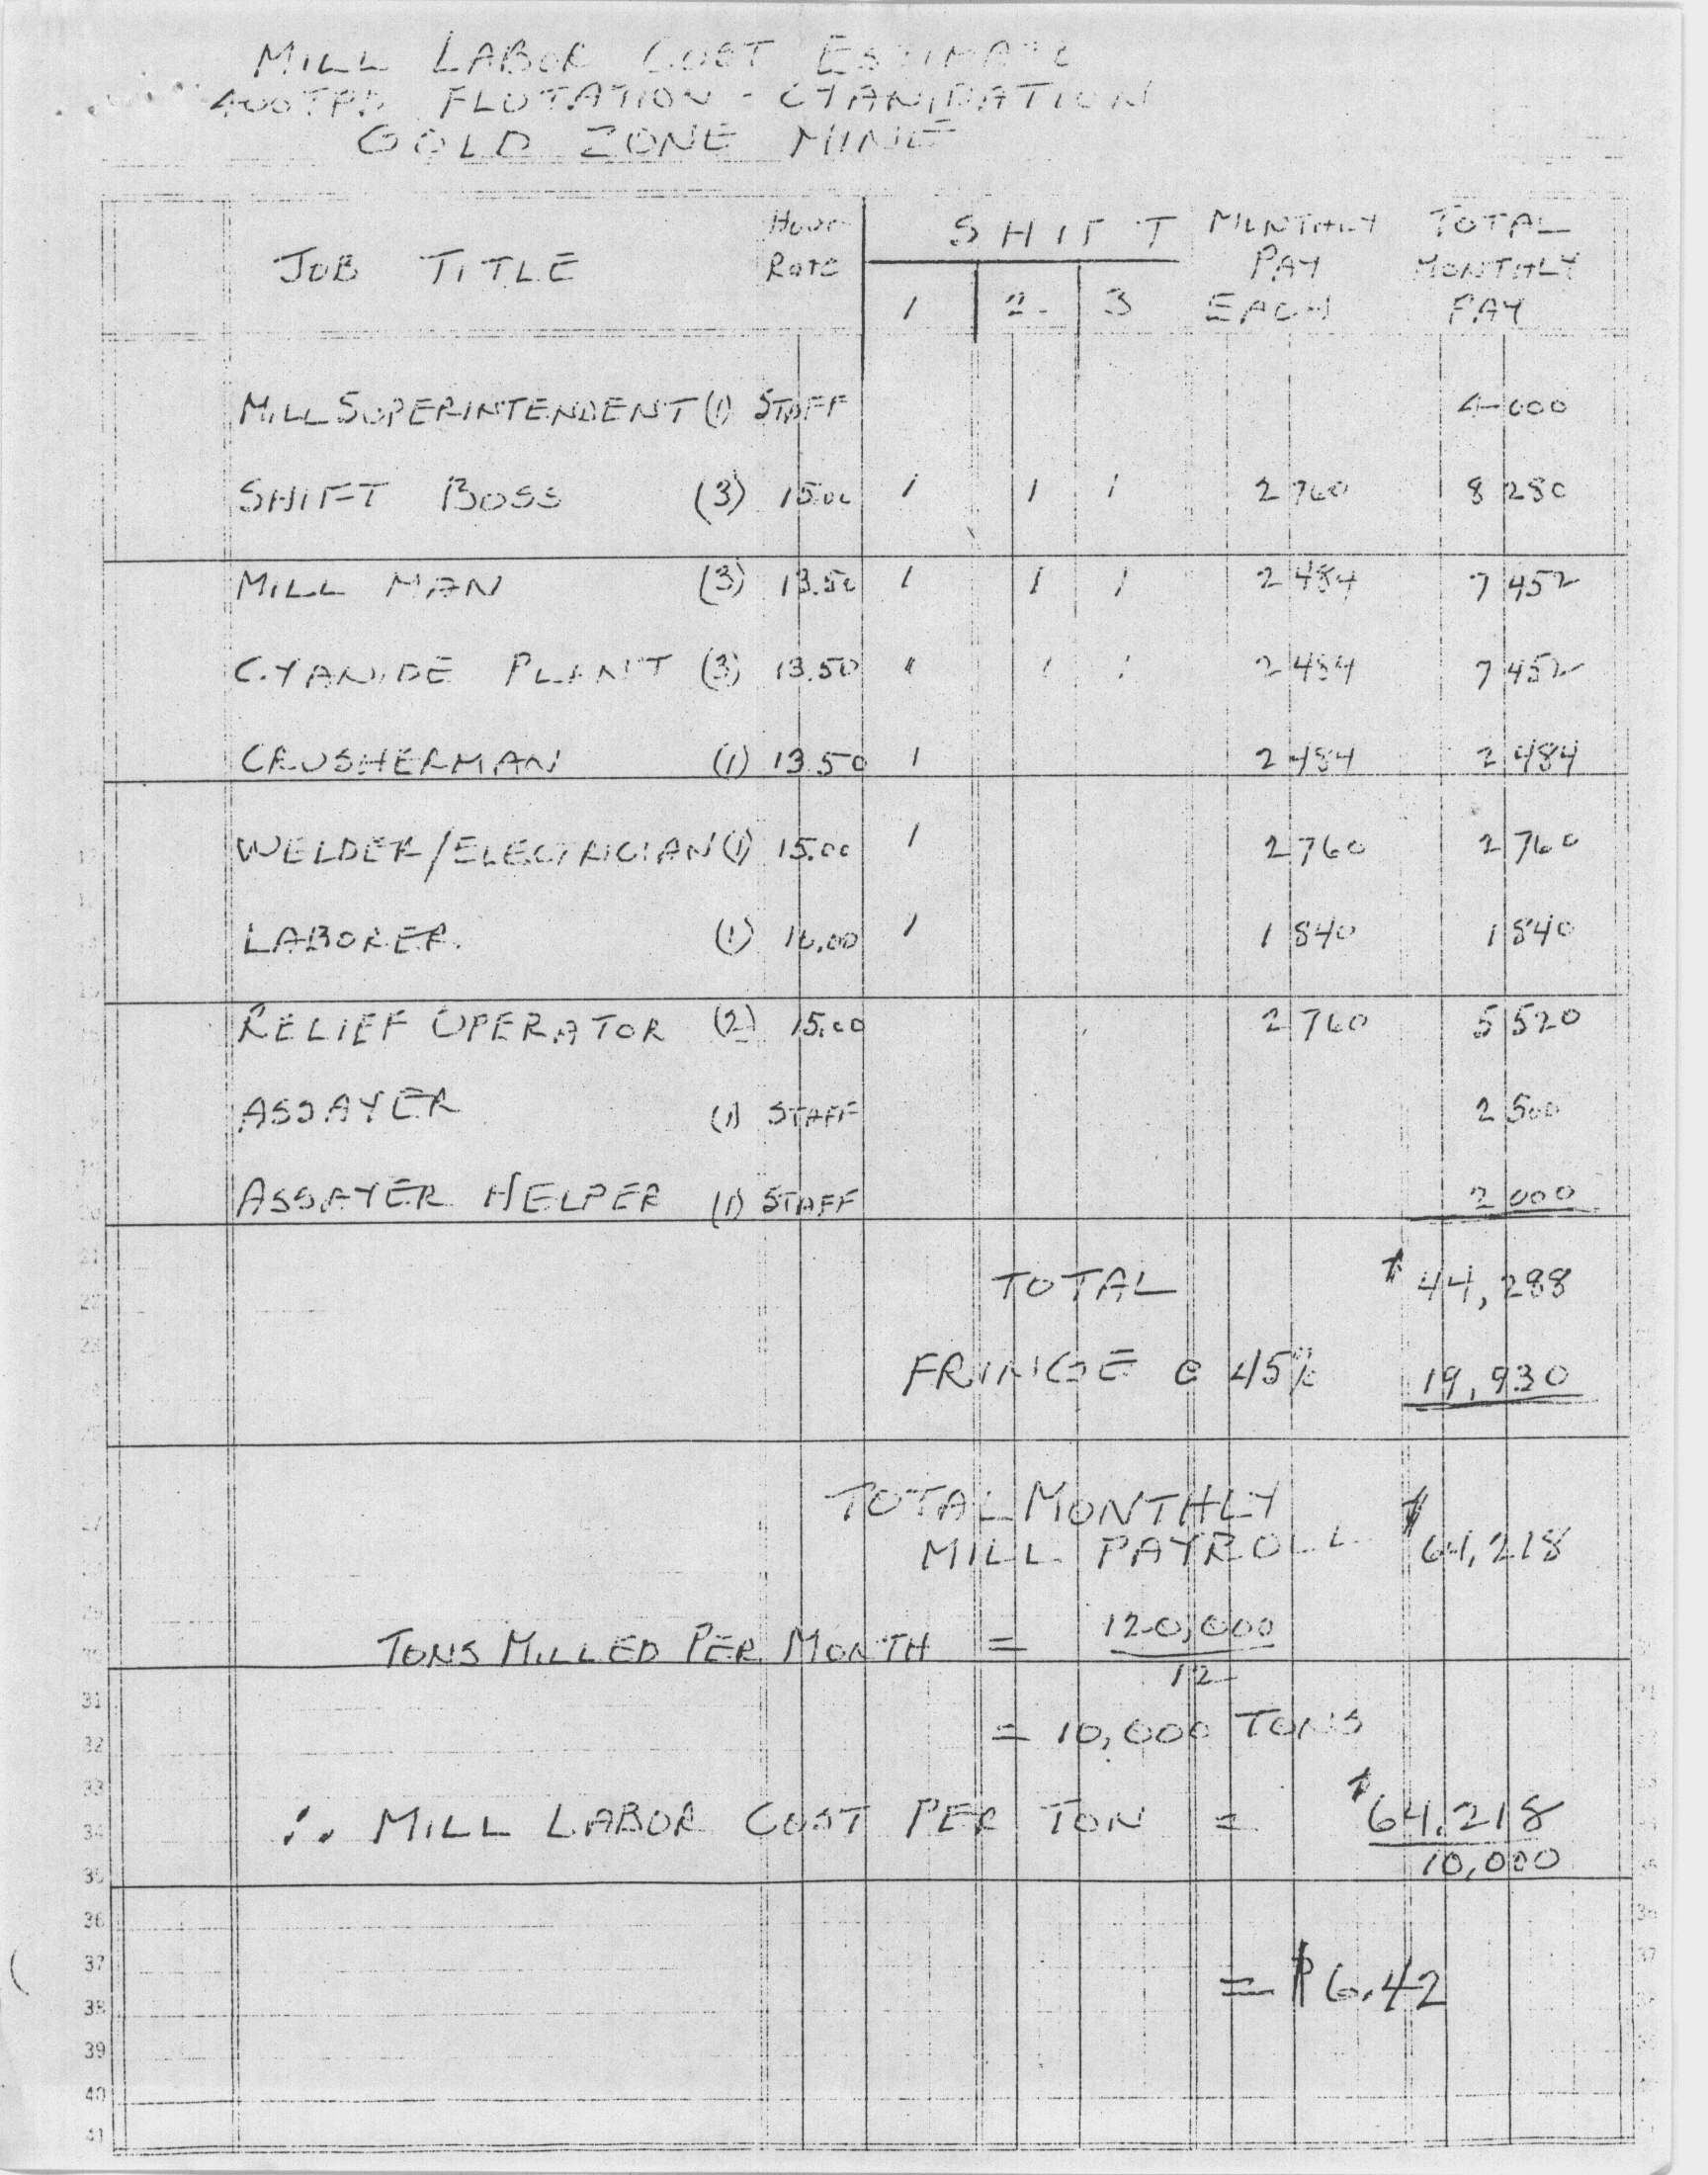 MILL LABOR COST ESTIMATE
400 TPD FLOTATION - CYANIDATION
GOLD ZONE MINE
JOB TITLE Hour Rate SHIFT 1 2 3 MONTHLY PAY EACH TOTAL MONTHLY PAY
MILL SUPERINTENDENT (1) STAFF 4 000
SHIFT BOSS (3) 15.00 1 1 1 2 760 8 280
MILL MAN (3) 13.50 1 1 1 2 484 7 452
CYANIDE PLANT (3) 13.50 1 1 1 2 484 7 452
CRUSHERMAN (1) 13.50 1 2 484 2 484
WELDER/ELECTRICIAN (1) 15.00 1 2 760 2 760
LABORER (1) 10.00 1 1 840 1 840
RELIEF OPERATOR (2) 15.00 2 760 5 520
ASSAYER (1) STAFF 2 500
ASSAYER HELPER (1) STAFF 2 000
TOTAL $44,288
FRINGE @ 45% 19,930
TOTAL MONTHLY
MILL PAYROLL $64,218
TONS MILLED PER MONTH = 120,000
12
= 10,000 TONS
∴ MILL LABOR COST PER TON = $64,218
10,000
= $6.42
31
32
33
34
35
36
37
38
39
40
41